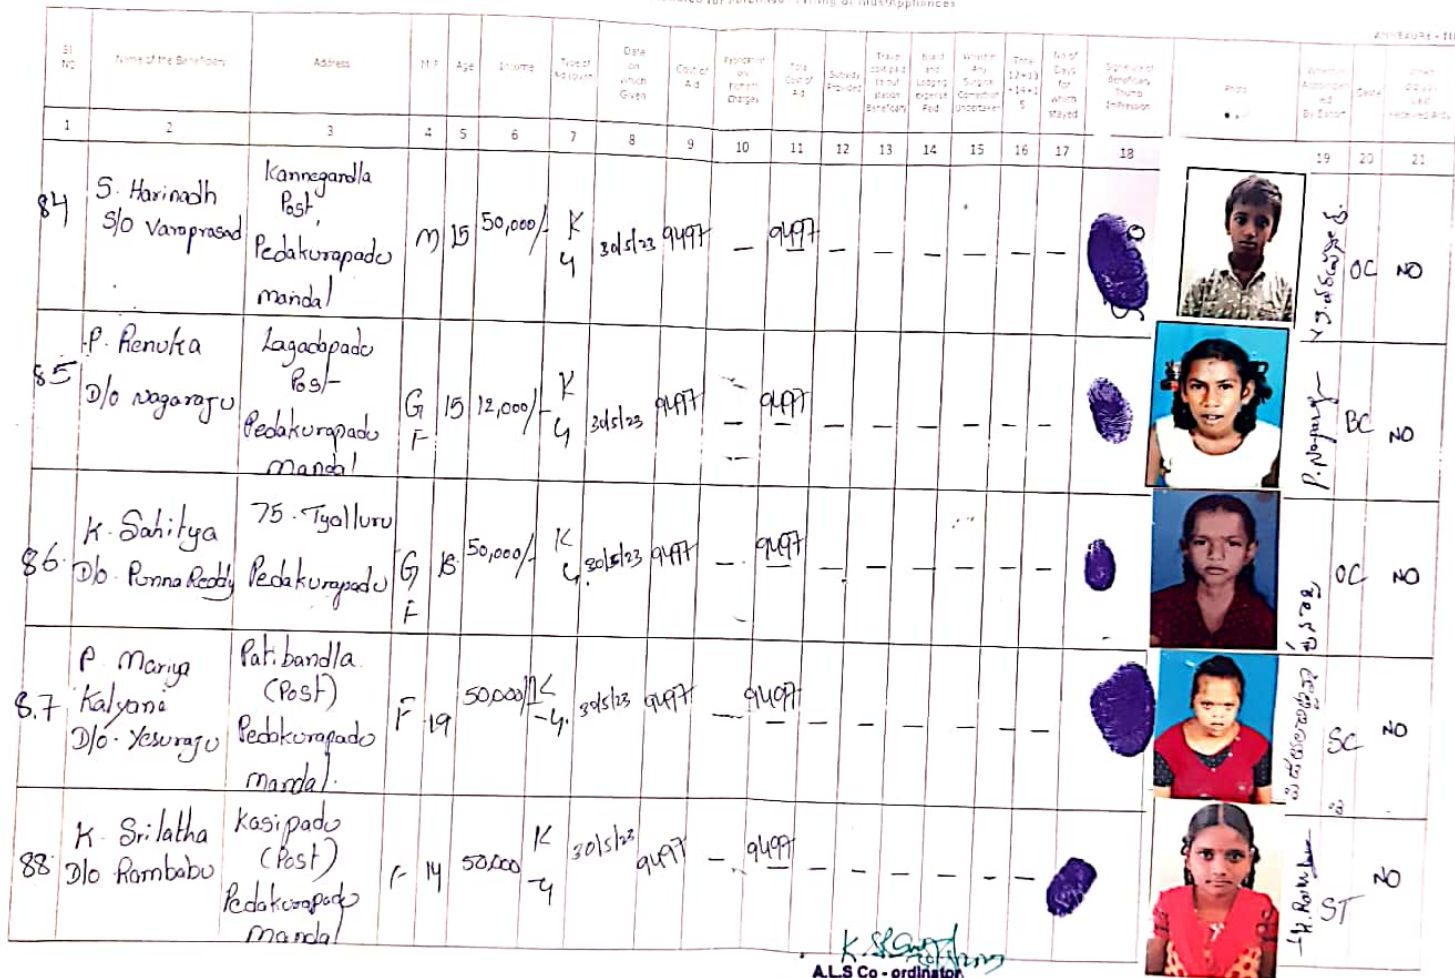 ANNEXURE - III
Sl NO Name of the Beneficiary Address M/F Age Income Type of Aid Given Date on which Given Cost of Aid Fabrication and Fitment Charges Total Cost of Aid Subsidy Provided Travel cost paid to out station Beneficiary Board and Lodging expense Paid Whether Any Surgical Correction Undertaken Total 12+13+14+15 No of Days for which stayed Signature of Beneficiary Thumb Impression Photo Caste
1 2 3 4 5 6 7 8 9 10 11 12 13 14 15 16 17 18 19 20 21
84 S. Harinadh Kannegandla
S/o Varaprasad Post, Pedakurapadu mandal M 15 50,000/- K 4 30/5/23 9497 — 9497 — — — — — — OC NO
85 P. Renuka Lagadapadu
D/o Nagaraju Post Pedakurapadu Mandal G F 15 12,000/- K 4 30/5/23 9497 — 9497 — — — — — — P. Nagaraju BC NO
86. K. Sahitya 75. Tyalluru
D/o. Punna Reddy Pedakurapadu G F 18 50,000/- K 4 30/5/23 9497 — 9497 — — — — — — OC NO
8.7 P. Mariya Patibandla
Kalyani (Post)
D/o. Yesuraju Pedakurapadu Mandal. F 19 50,000/- K -4. 30/5/23 9497 — 9497 — — — — — — SC NO
88 K. Srilatha Kasipadu
D/o Rambabu (Post) Pedakurapadu Mandal F 14 50,000 K -4 30/5/23 9497 — 9497 — — — — — — ST NO
A.L.S Co - ordinator